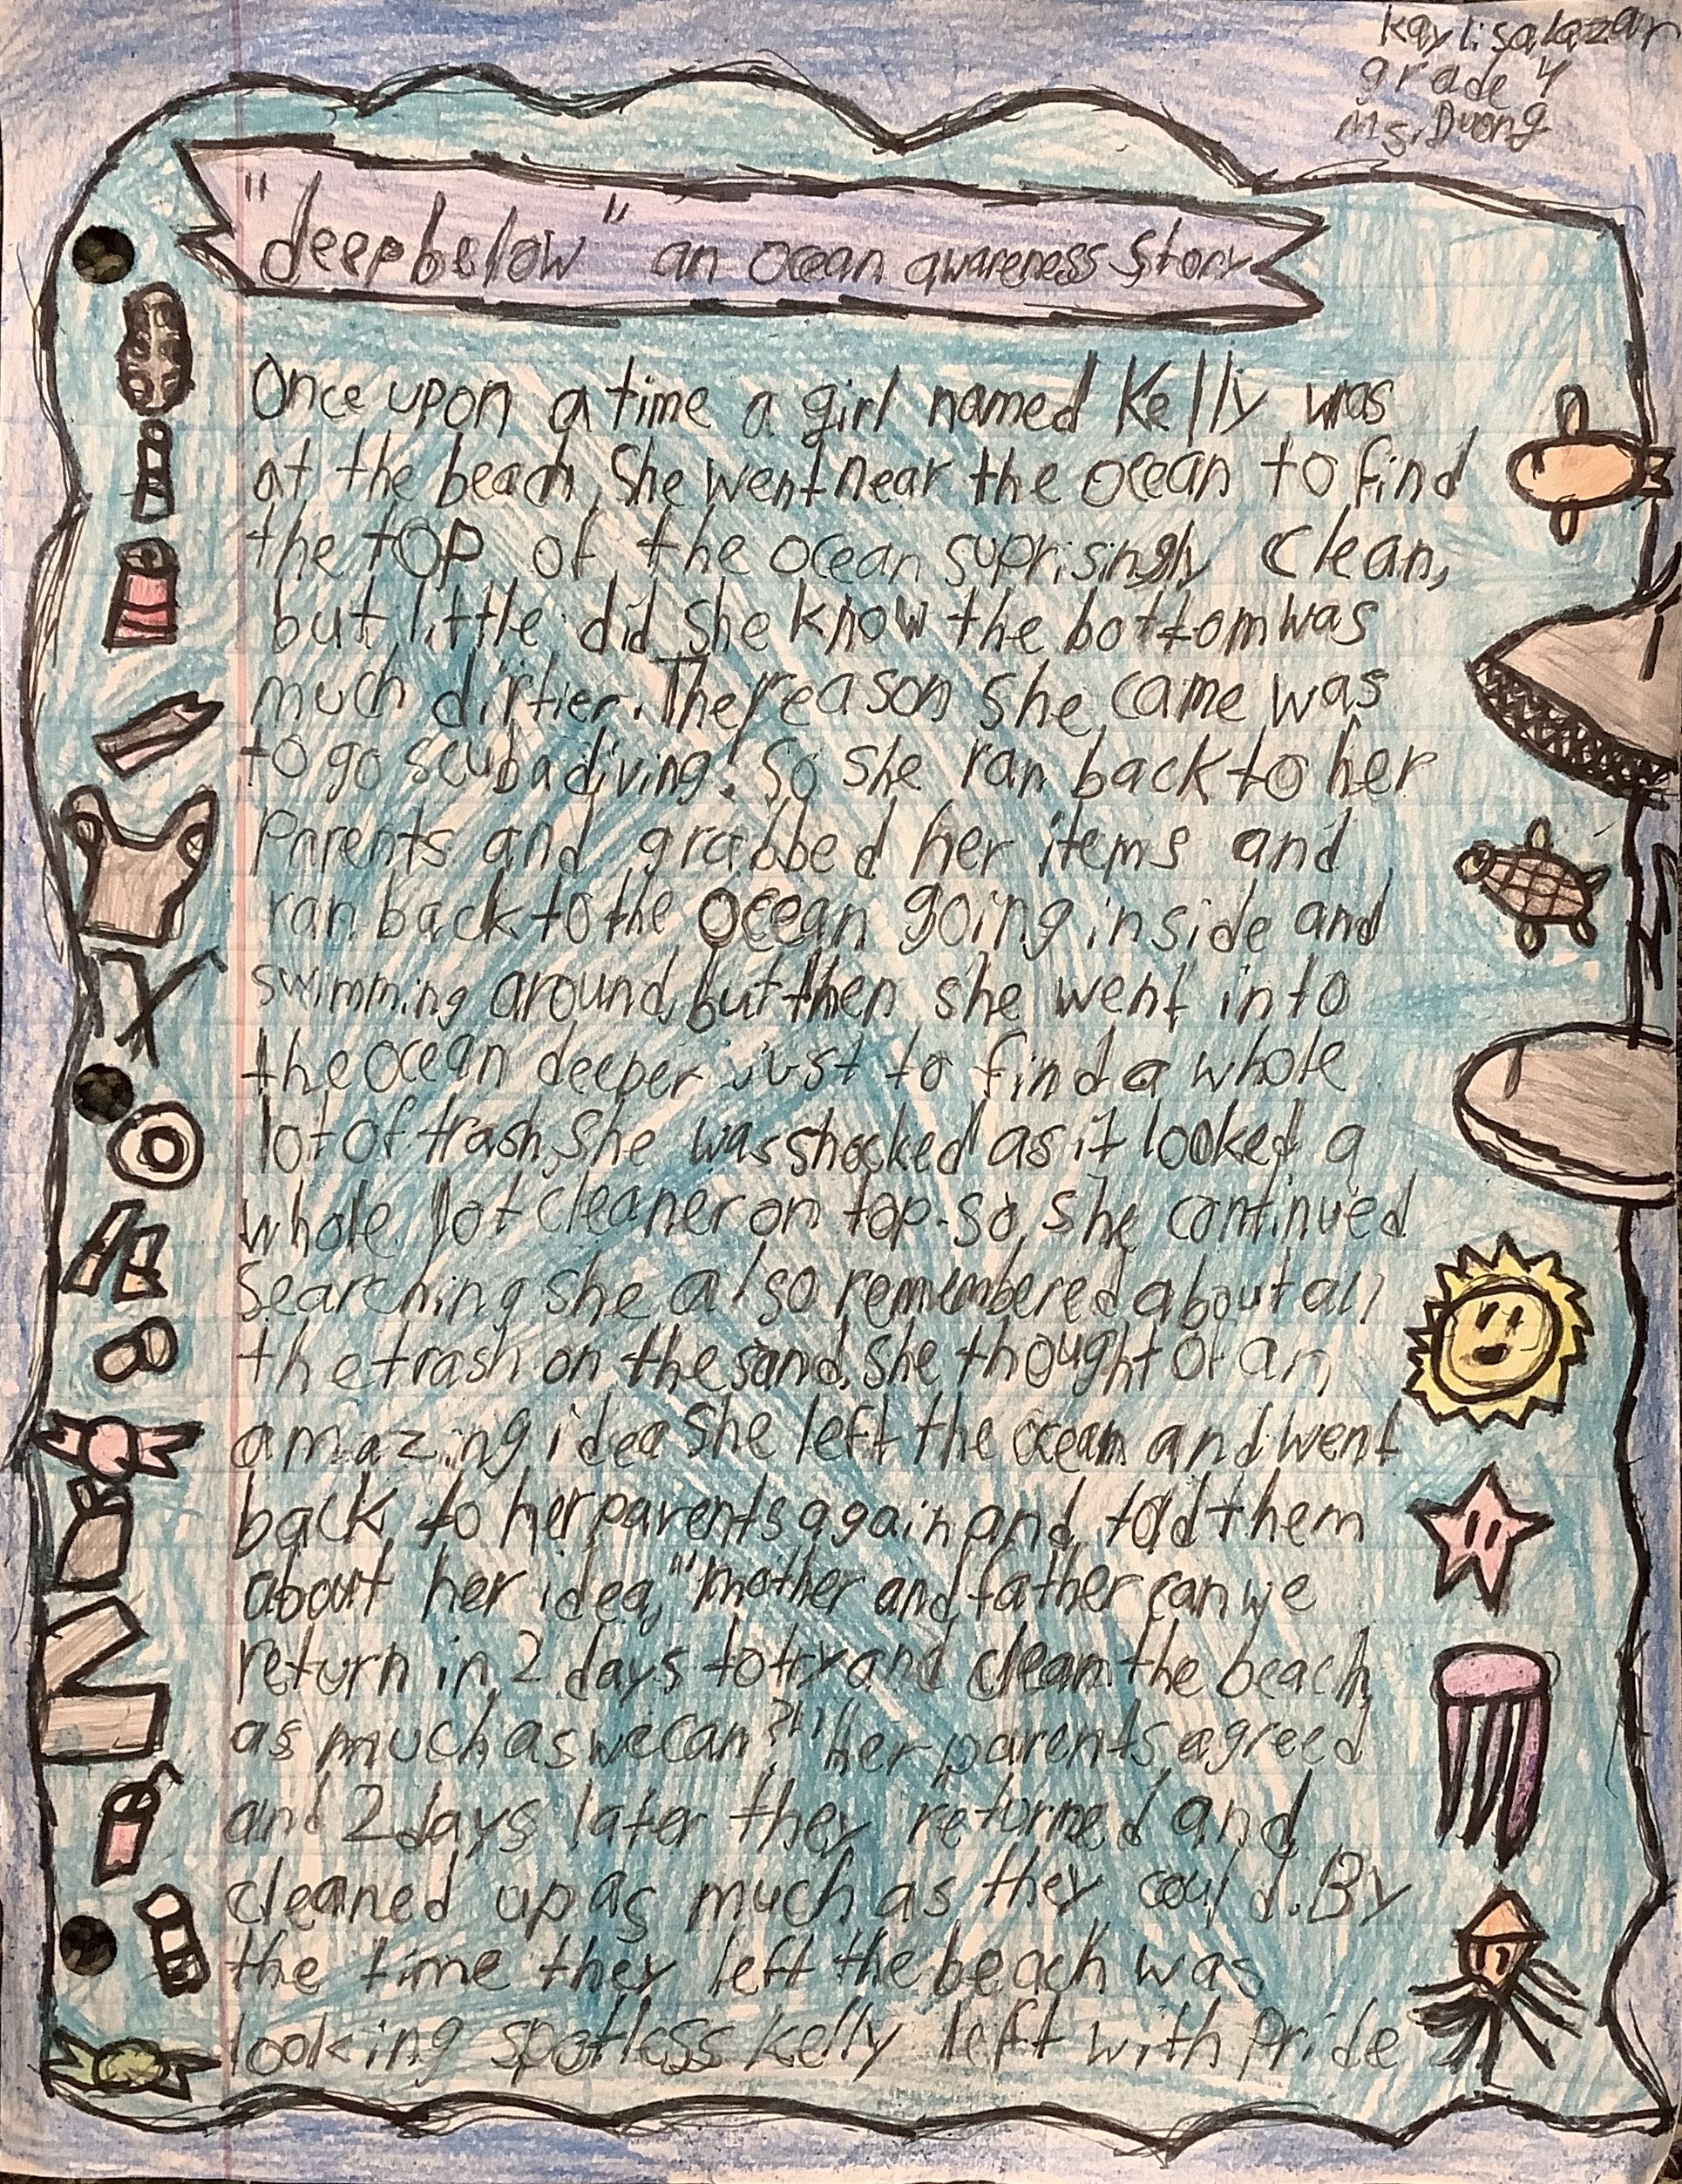 Kayli salazar
grade 4
Ms. Duong
"deep below" an ocean awareness story
Once upon a time a girl named Kelly was
at the beach, She went near the ocean to find
the top of the ocean suprisingly clean,
but little did she know the bottom was
much dirtier. The reason she came was
to go scuba diving! So she ran back to her
Parents and grabbed her items and
ran back to the ocean going inside and
swimming around, but then she went into
the ocean deeper just to find a whole
lot of trash, she was shocked as it looked a
whole lot cleaner on top. so, she continued
searching she also remembered about all
the trash on the sand, she thought of an
amazing idea she left the ocean and went
back to her parents again and told them
about her idea, "mother and father can we
return in 2 days to try and clean the beach
as much as we can?!" her parents agreed
and 2 days later they returned and
cleaned up as much as they could. By
the time they left the beach was
looking spotless Kelly left with Pride